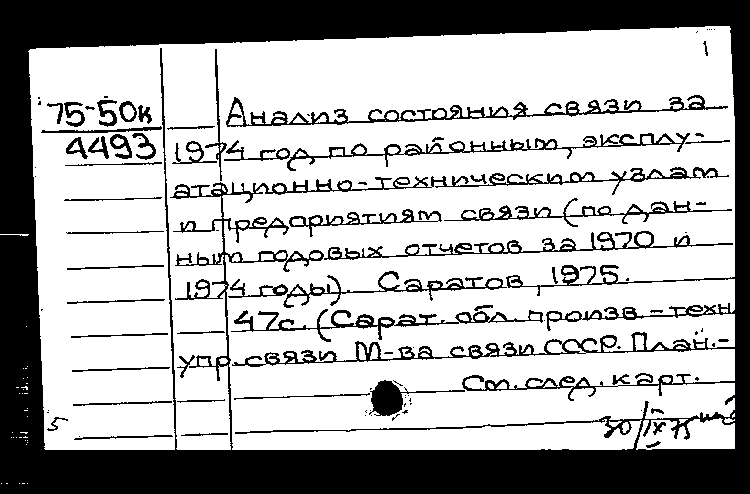 1
75-50к
4493
Анализ состояния связи за
1974 год по районным, эксплу-
атационно-техническим узлам
и предприятиям связи (по дан-
ным годовых отчетов за 1970 и
1974 годы). Саратов, 1975.
47с. (Сарат. обл. произв.-техн.
упр. связи М-ва связи СССР. План.-
См. след. карт.
5
30/IX 75